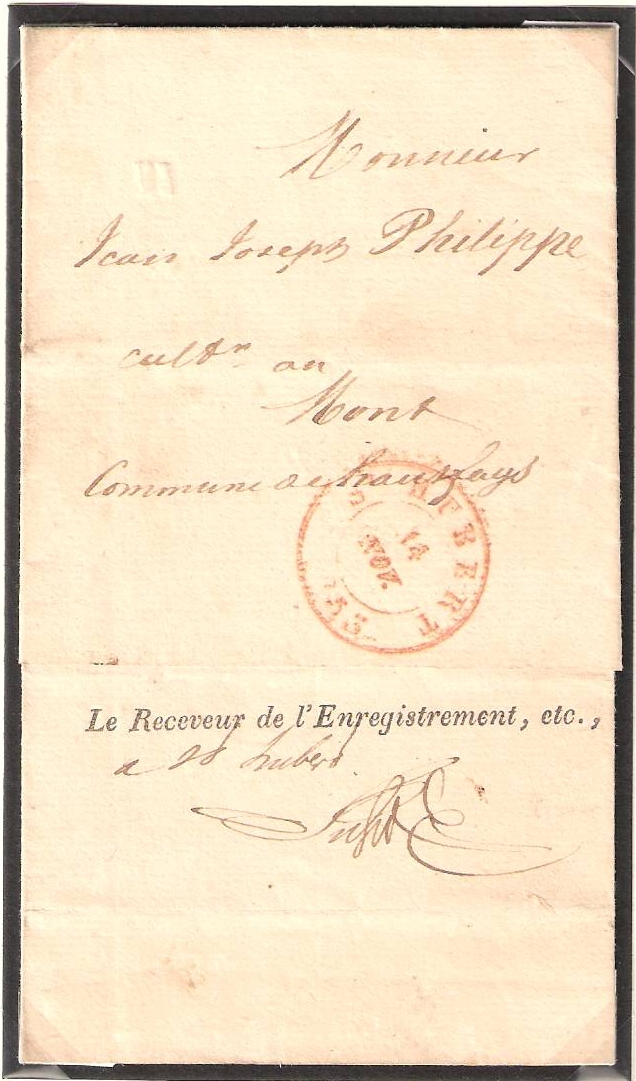 Monsieur
Jean Joseph Philippe
cultr au
Mont
Commune de hautfays
HUBERT
14
NOV.
Le Receveur de l'Enregistrement, etc.,
a St hubert